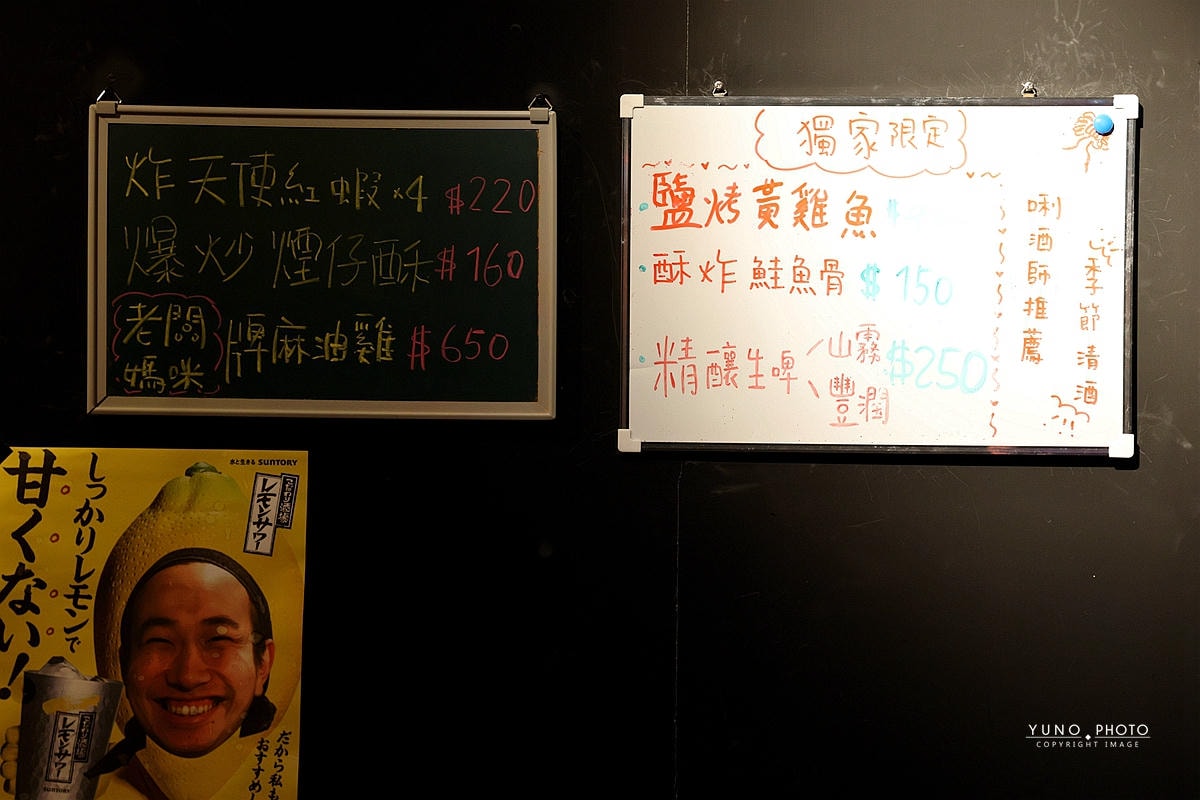 炸天使紅蝦×4 $220
爆炒煙仔酥 $160
老闆
媽咪
牌麻油雞 $650
獨家限定
鹽烤黃雞魚
酥炸鮭魚骨 $150
精釀生啤
山霧
豐潤
$250
季節清酒
唎酒師推薦
水と生きる SUNTORY
こだわり酒場
レモンサワー
しっかりレモンで
甘くない!
こだわり酒場
レモンサワー
SUNTORY
だから私も
おすすめし
YUNO PHOTO
COPYRIGHT IMAGE